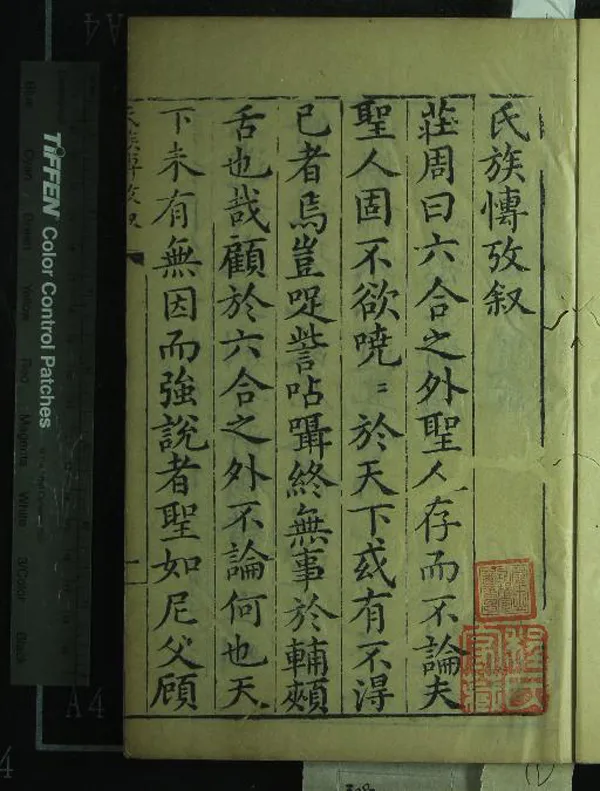 氏族慱攷叙
莊周曰六合之外聖人存而不論夫
聖人固不欲嘵〻於天下或有不得
已者烏豈哫訾呫躡終無事於輔頰
舌也哉顧於六合之外不論何也天
下未有無因而強說者聖如尼父顧
氏族慱攷叙
一
TIFFEN Color Control Patches
Blue Cyan Green Yellow Red Magenta White 3/Color Black
A4
A4